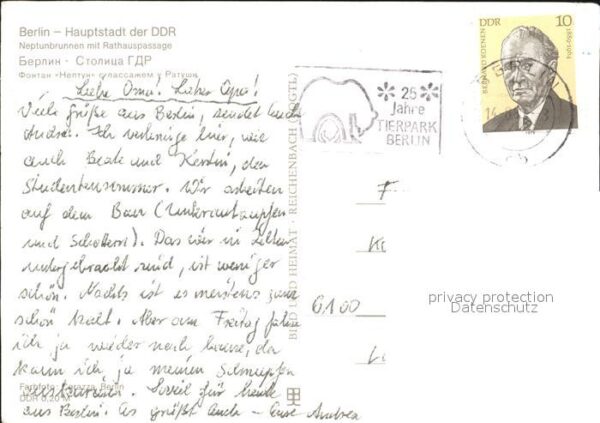 Berlin – Hauptstadt der DDR
Neptunbrunnen mit Rathauspassage
Берлин · Столица ГДР
Фонтан «Нептун» с пассажем у Ратуши
Liebe Oma! Lieber Opa!
Viele Grüße aus Berlin, sendet Euch
Andrea. Ich verbringe hier, wie
auch Beate und Kerstin, den
Studentensommer. Wir arbeiten
auf dem Bau (
und Schottern). Das wir in Zelten
untergebracht sind, ist weniger
schön. Nachts ist es meistens ganz
schön kalt. Aber am Freitag fahre
ich ja wieder nach hause, da
kann ich ja meinen Schnupfen
auskurieren. Soviel für heute
aus Berlin. Es grüßt Euch – Eure Andrea
Farbfoto: Berlin
DDR 0,20 M
BILD UND HEIMAT · REICHENBACH (VOGTL)
25
Jahre
TIERPARK
BERLIN
DDR 10
BERNARD KOENEN 1889-1964
F
K
6100
L
privacy protection
Datenschutz